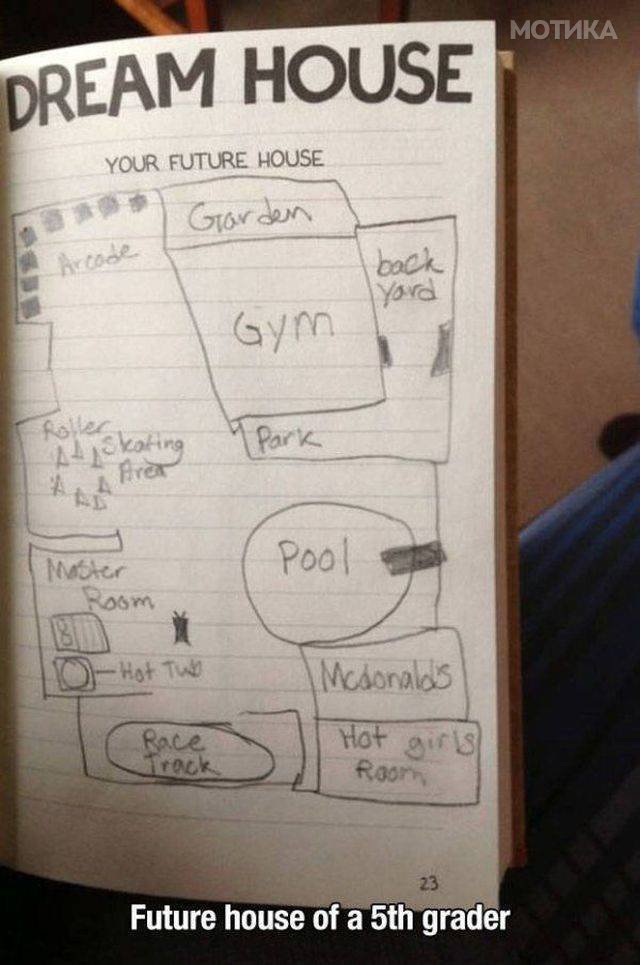 МОТИКА
DREAM HOUSE
YOUR FUTURE HOUSE
Garden
Arcade
back
yard
Gym
Roller
Skating
Area
Park
Pool
Master
Room
Hot Tub
Mcdonald's
Race
Track
Hot girls
Room
23
Future house of a 5th grader